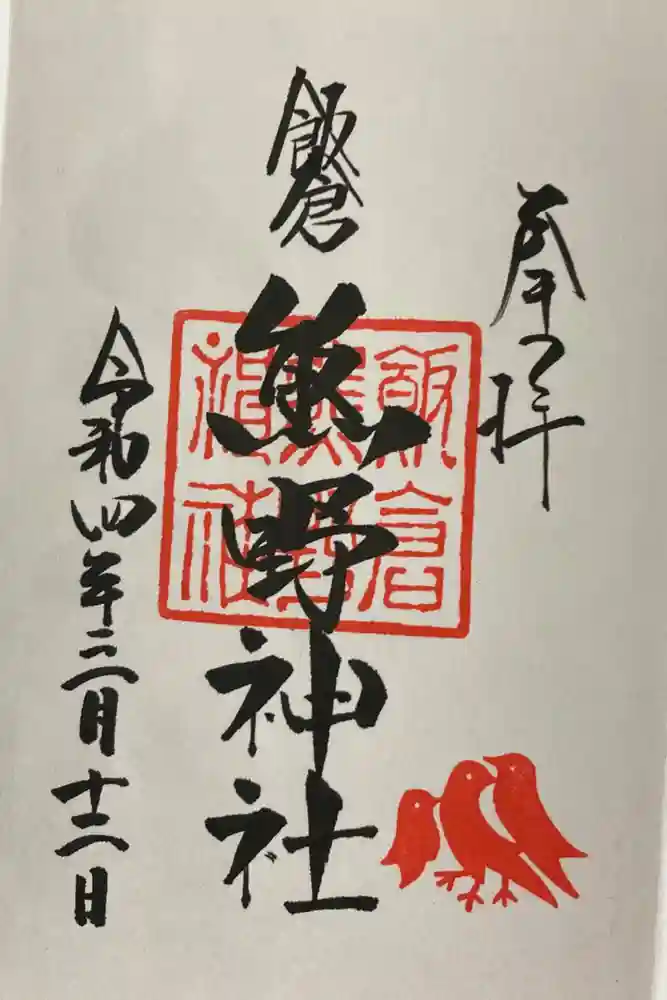 奉拝
飯倉
熊野神社
令和四年三月十二日
飯倉
熊野
神社